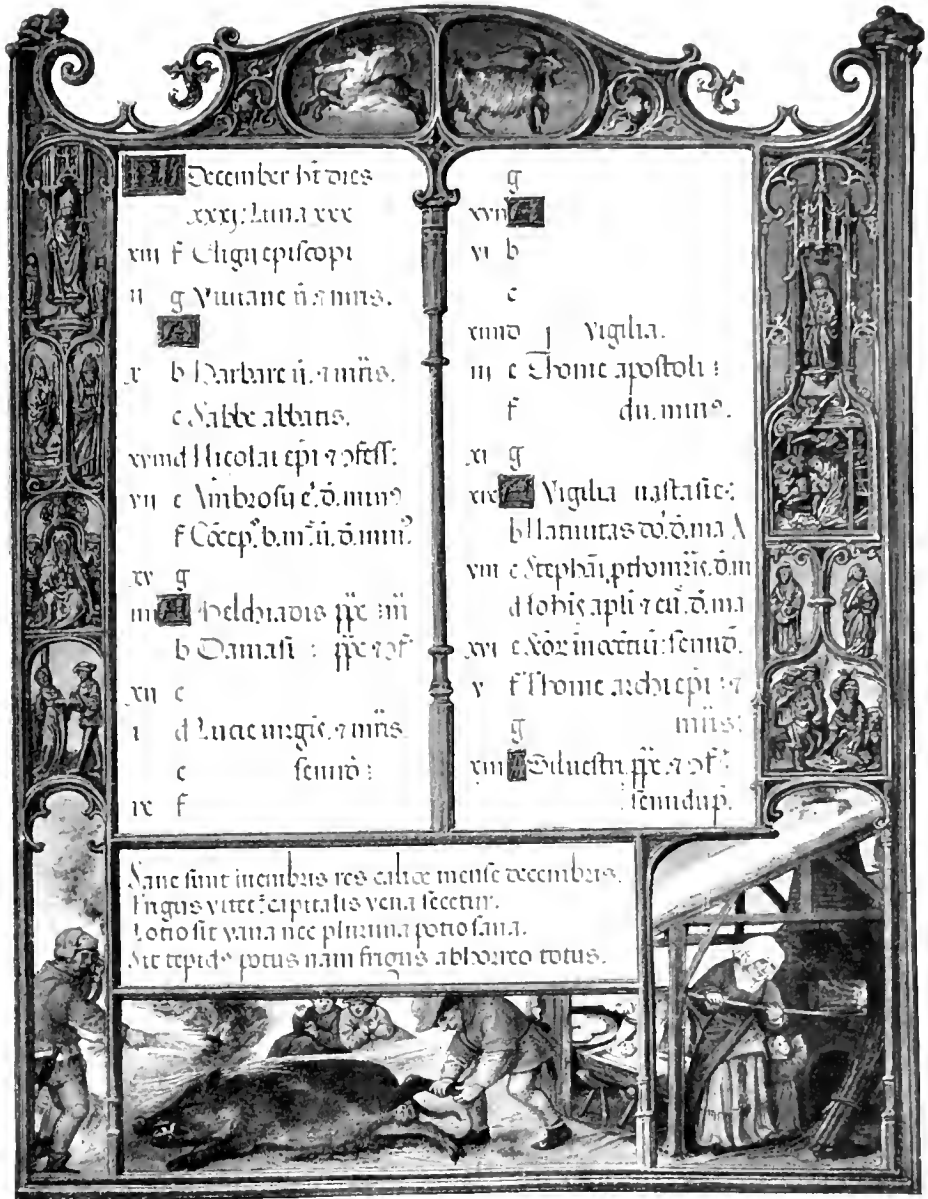 December ht dies
xxxj: Luna xxx
xiii f Eligij episcopi
ii g Viviane v̄. ⁊ mr̄is.
A
x b Barbare v̄. ⁊ mr̄is.
c Sabbe abbatis.
xviii d Nicolai epī ⁊ ɔfess:
vii e Ambrosij
f
xv g
iiii A Melchiadis pp̄e
b Damasi : pp̄e ⁊ ɔf
xii c
i d Lucie virgīs. ⁊ mr̄is
e
ix f
g
xvii A
vi b
c
xiiii d Vigilia.
iii e Thome apostoli :
f du. minus.
xi g
xix A Vigilia
b Nativitas
viii c Stephāi
d Iohīs apl̄i ⁊
xvi e
v f Thome archiepī : ⁊
g mr̄is:
xiii A Silvestri. pp̄e. ⁊ ɔf:
semidup.
Sane sunt membris res calide mense decembris.
Frigus vitet: capitalis vena secetur.
Lotio sit vana nec plurima potio sana.
Sit tepids potus nam frigus abhorreo totus.